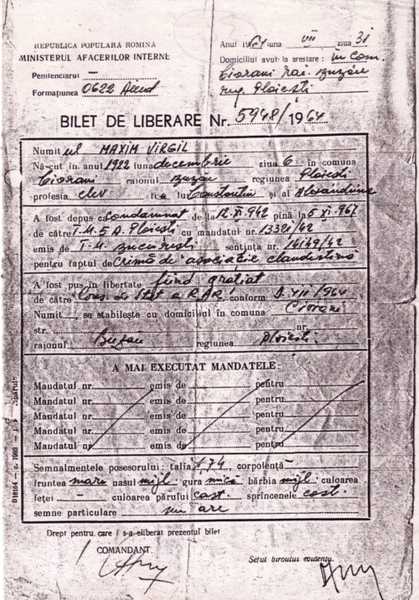 REPUBLICA POPULARA ROMINA
MINISTERUL AFACERILOR INTERNE
Penitenciarul —
Formațiunea 0622 Aiud
Anul 1964 luna VII ziua 31
Domiciliul avut la arestare: în com.
Ciorani rai. Buzău
reg. Ploiești
BILET DE LIBERARE Nr. 5948/1964
Numitul MAXIM VIRGIL
Născut în anul 1922 luna decembrie ziua 6 în comuna
Ciorani raionul Buzău regiunea Ploiești
profesia elev Constantin și al Alexandrina
A fost depus condamnat de la 12.XI.942 pînă la 5 XI.967
de către Ploiești cu mandatul nr. /42
emis de T.M. București sentința nr. /42
pentru faptul de Crimă de asociație clandestină
A fost pus în libertate fiind grațiat
de către Cons. de Stat a R.P.R. conform
Numit va stabilește cu domiciliul în comuna Ciorani
str. nr.
raionul Buzău regiunea Ploiești
A MAI EXECUTAT MANDATELE:
Mandatul nr. emis de pentru
Mandatul nr. emis de pentru
Mandatul nr. emis de pentru
Mandatul nr. emis de pentru
Mandatul nr. emis de pentru
Semnalmentele posesorului: talia 1,74, corpolența —
fruntea mare nasul mijl gura mică bărbia mijl culoarea
feței — culoarea părului cast. sprîncenele cast.
semne particulare nu are
Drept pentru care i s-a eliberat prezentul bilet
COMANDANT,
Șeful biroului evidență,